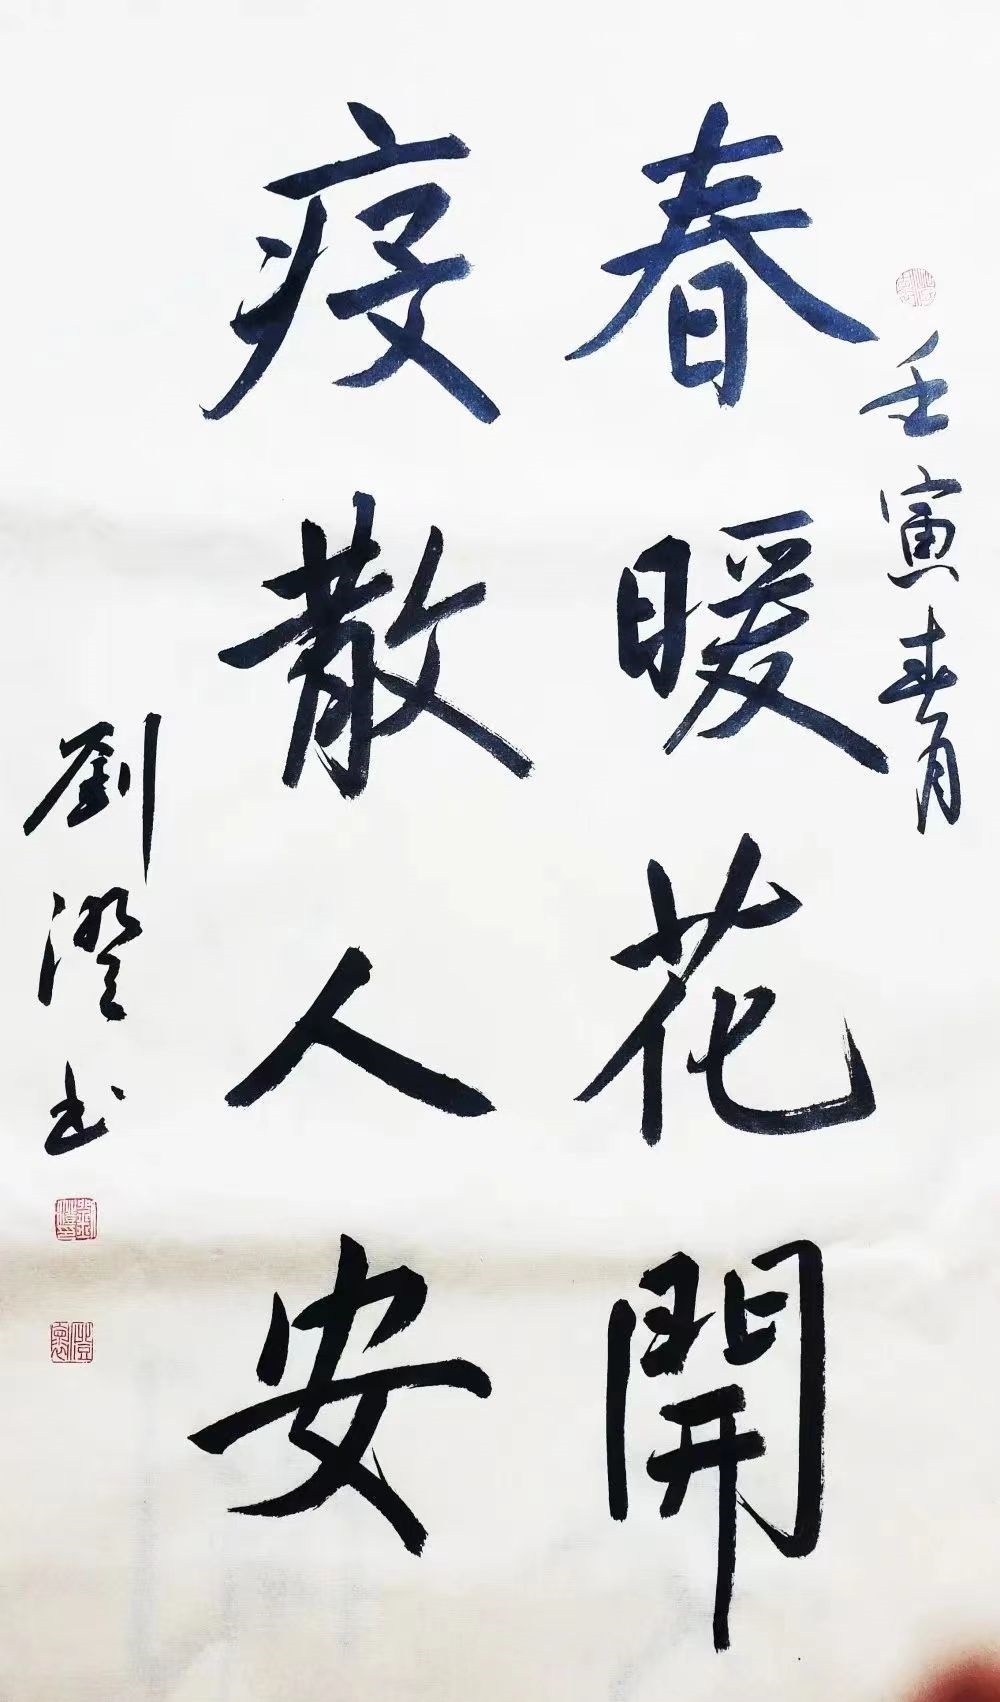 壬寅春月
春暖花開
疫散人安
劉澄书